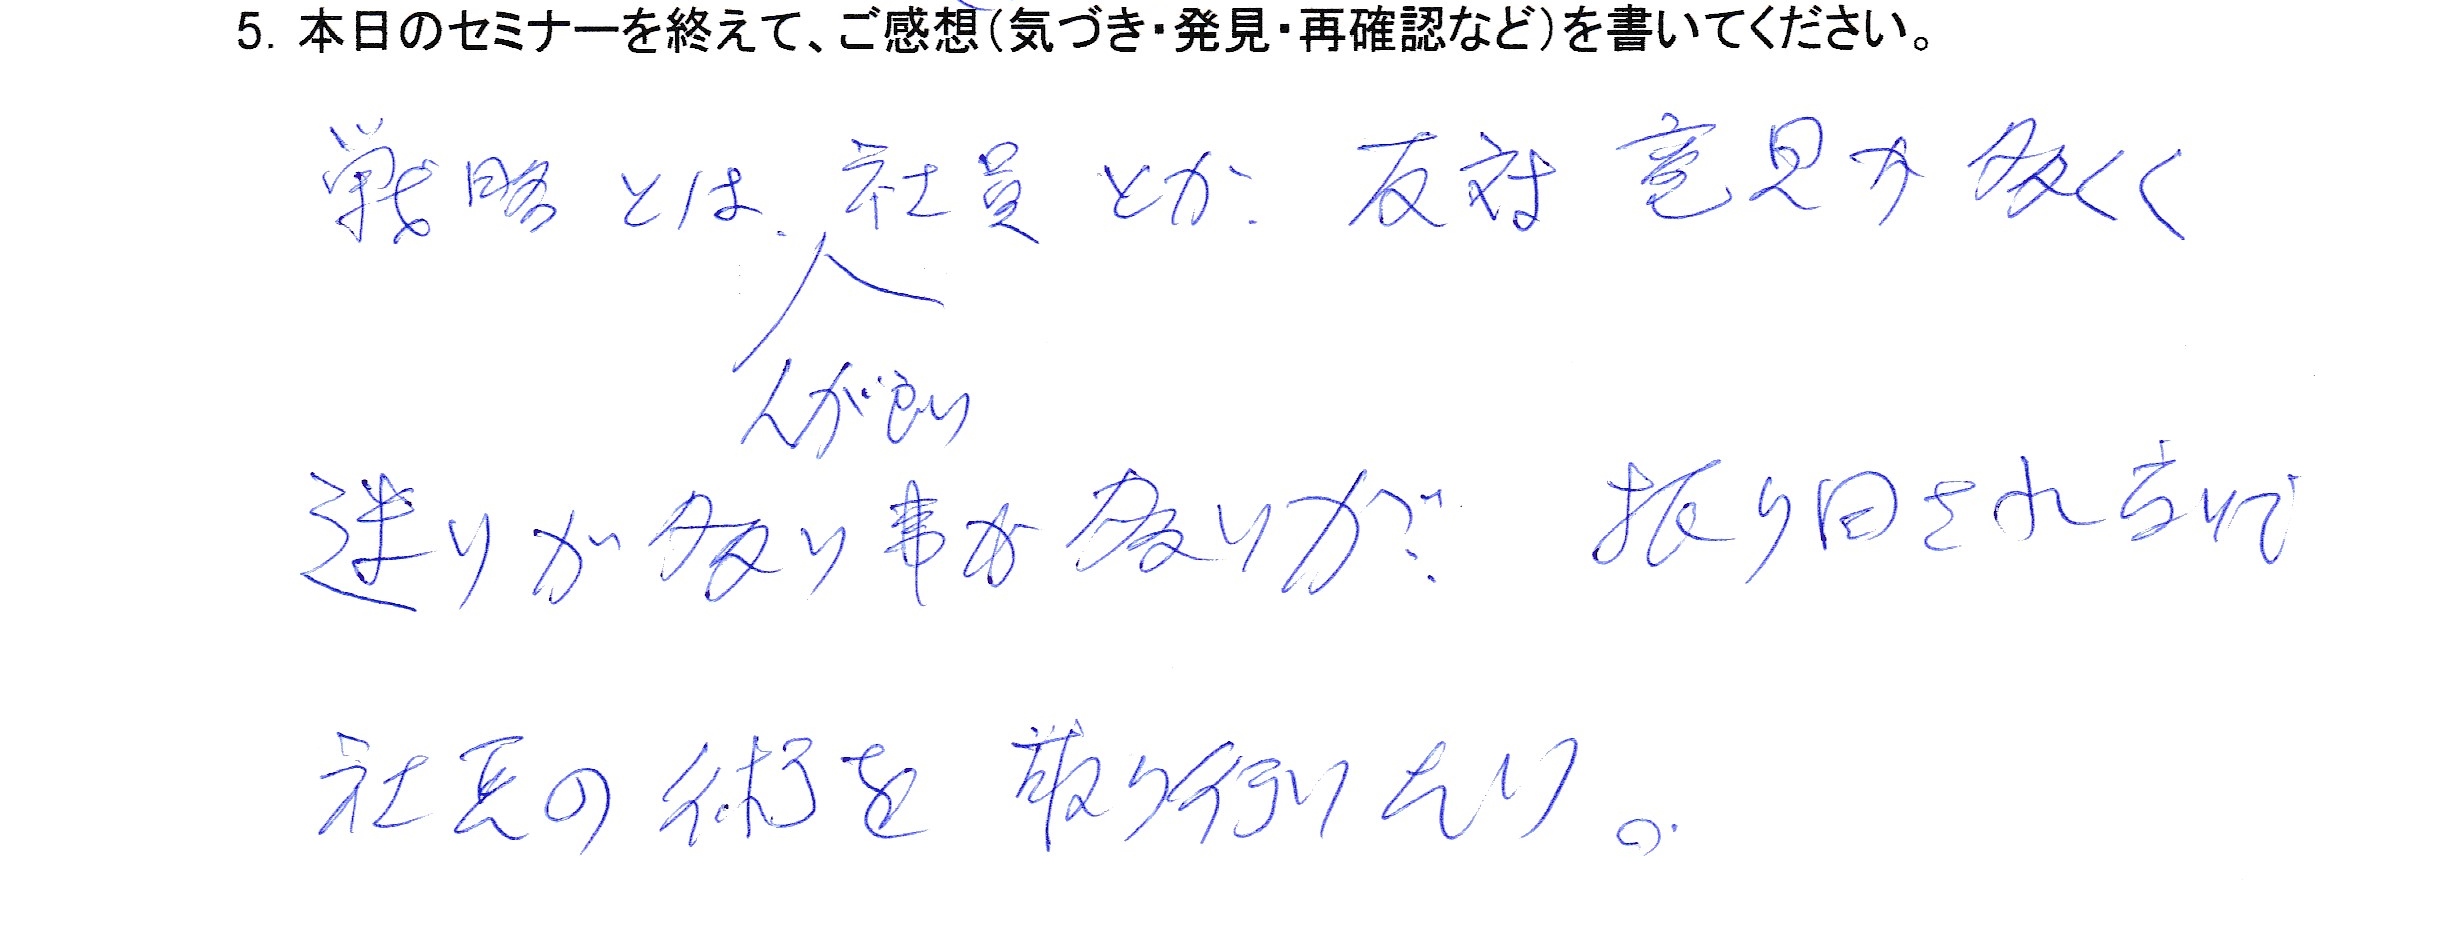 5. 本日のセミナーを終えて、ご感想（気づき・発見・再確認など）を書いてください。
戦略とは、社員とか、反対意見が多くく
人が良い
迷いが多い事が多いが、振り回されないで
社長の術を取り行いたい。